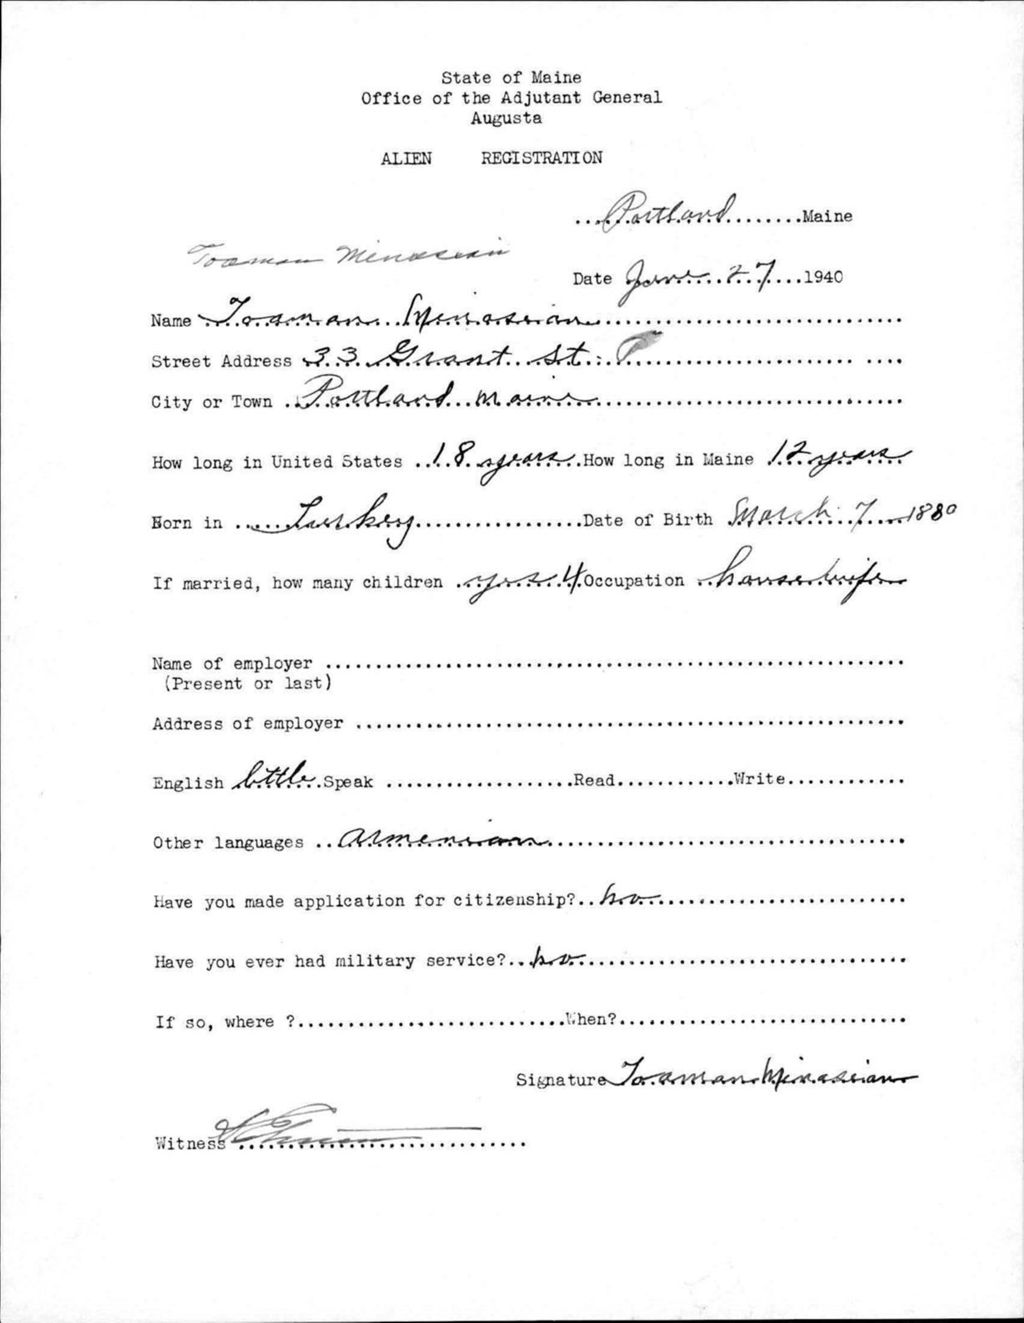 State of Maine
Office of the Adjutant General
Augusta
ALIEN REGISTRATION
...Portland........Maine
Toaman Minassian
Date June...27....1940
Name Toaman Minassian
Street Address 33 Grant St.
City or Town Portland Maine
How long in United States 18 years How long in Maine 12 years
Born in Turkey Date of Birth March 7 1880
If married, how many children yes 4 Occupation housewife
Name of employer
(Present or last)
Address of employer
English little Speak Read Write
Other languages Armenian
Have you made application for citizenship? no
Have you ever had military service? no
If so, where ? When?
Signature Toaman Minassian
Witness